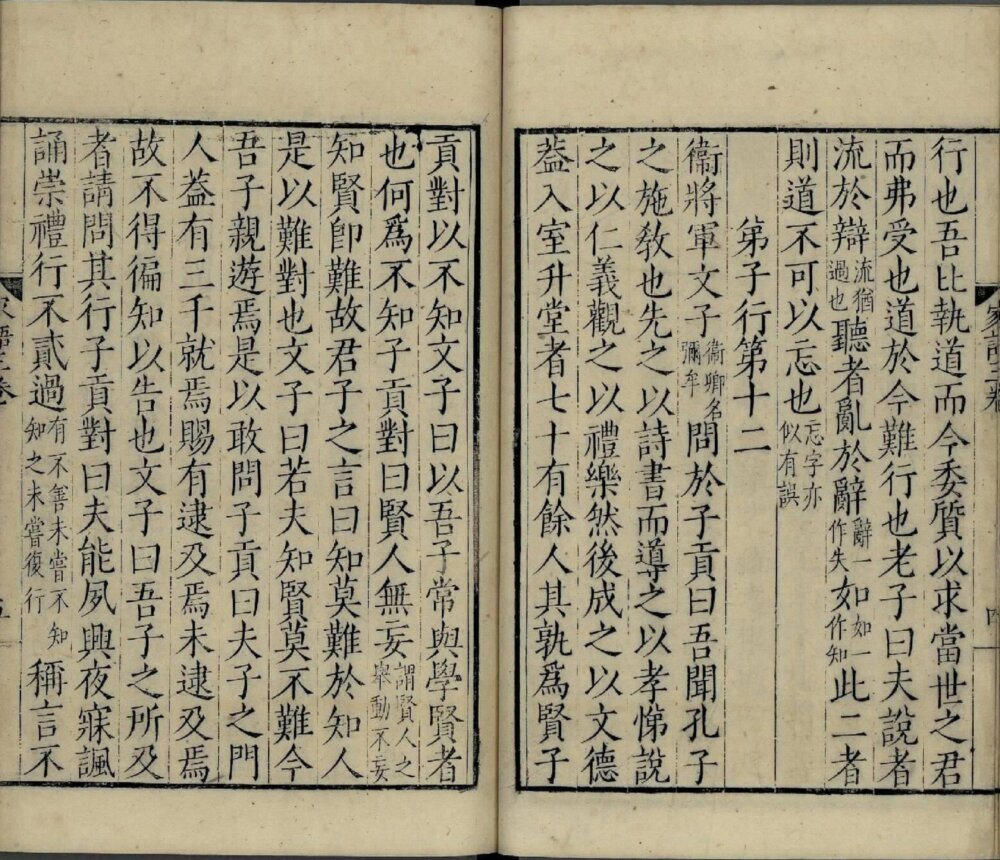 行也吾比執道而今委質以求當世之君
而弗受也道於今難行也老子曰夫說者
流於辯流猶過也聽者亂於辭辭一作失如如一作知此二者
則道不可以忘也忘字亦似有誤
弟子行第十二
衞將軍文子衞卿名彌牟問於子貢曰吾聞孔子
之施敎也先之以詩書而導之以孝悌說
之以仁義觀之以禮樂然後成之以文德
葢入室升堂者七十有餘人其孰爲賢子
貢對以不知文子曰以吾子常與學賢者
也何爲不知子貢對曰賢人無妄謂賢人之舉動不妄
知賢卽難故君子之言曰知莫難於知人
是以難對也文子曰若夫知賢莫不難今
吾子親遊焉是以敢問子貢曰夫子之門
人葢有三千就焉賜有逮及焉未逮及焉
故不得徧知以告也文子曰吾子之所及
者請問其行子貢對曰夫能夙興夜寐諷
誦崇禮行不貳過有不善未嘗不知知之未嘗復行稱言不
家語三卷